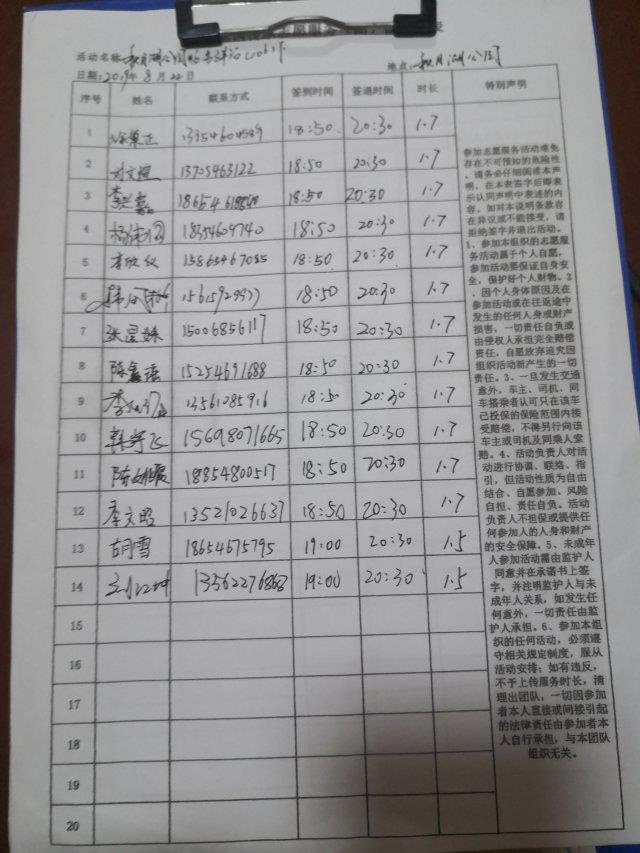 活动名称:
日期: 2019年 8 月 22 日
地点: 秋月湖公园
序号 姓名 联系方式 签到时间 签退时间 时长 特别声明
1 18:50 20:30 1.7
2 刘文煊 13705463122 18:50 20:30 1.7
3 18:50 20:30 1.7
4 18354609740 18:50 20:30 1.7
5 李欣仪 15865467085 18:50 20:30 1.7
6 18:50 20:30 1.7
7 15006856117 18:50 20:30 1.7
8 陈鑫语 15254691688 18:50 20:30 1.7
9 13561085916 18:50 20:30 1.7
10 15698071665 18:50 20:30 1.7
11 18854800517 18:50 20:30 1.7
12 李文昭 13521026637 18:50 20:30 1.7
13 胡雪 18654675795 19:00 20:30 1.5
14 13562276868 19:00 20:30 1.5
15
16
17
18
19
20
参加志愿服务活动难免
存在不可预知的危险性
,请务必仔细阅读本声
明,在本表签字后即表
示认同声明中表述的内
容,如对本说明条款存
在异议或不能接受,请
拒绝签字并退出活动。
1、参加本组织的志愿服
务活动属于个人自愿,
参加活动要保证自身安
全,保护好个人财物。2
、因个人身体原因及在
参加活动或在往返途中
发生的任何人身或财产
损害,一切责任自负或
由侵权人承担完全赔偿
责任,自愿放弃追究因
组织活动而产生的一切
责任。3、一旦发生交通
意外,车主、司机、同
车搭乘者认可只在该车
已投保的保险范围内接
受赔偿,不得另行向该
车主或司机及同乘人索
赔。4、活动负责人对活
动进行协调、联络、指
引,但活动性质为自由
结合、自愿参加、风险
自担、责任自负。活动
负责人不担保或提供任
何参加人的人身和财产
的安全保障。5、未成年
人参加活动需由监护人
同意并在承诺书上签
字,并注明监护人与未
成年人关系,如发生任
何意外,一切责任由监
护人承担。6、参加本组
织的任何活动,必须遵
守相关规定制度,服从
活动安排;如有违反,
不予上传服务时长,清
理出团队,一切因参加
者本人直接或间接引起
的法律责任由参加者本
人自行承担,与本团队
组织无关。